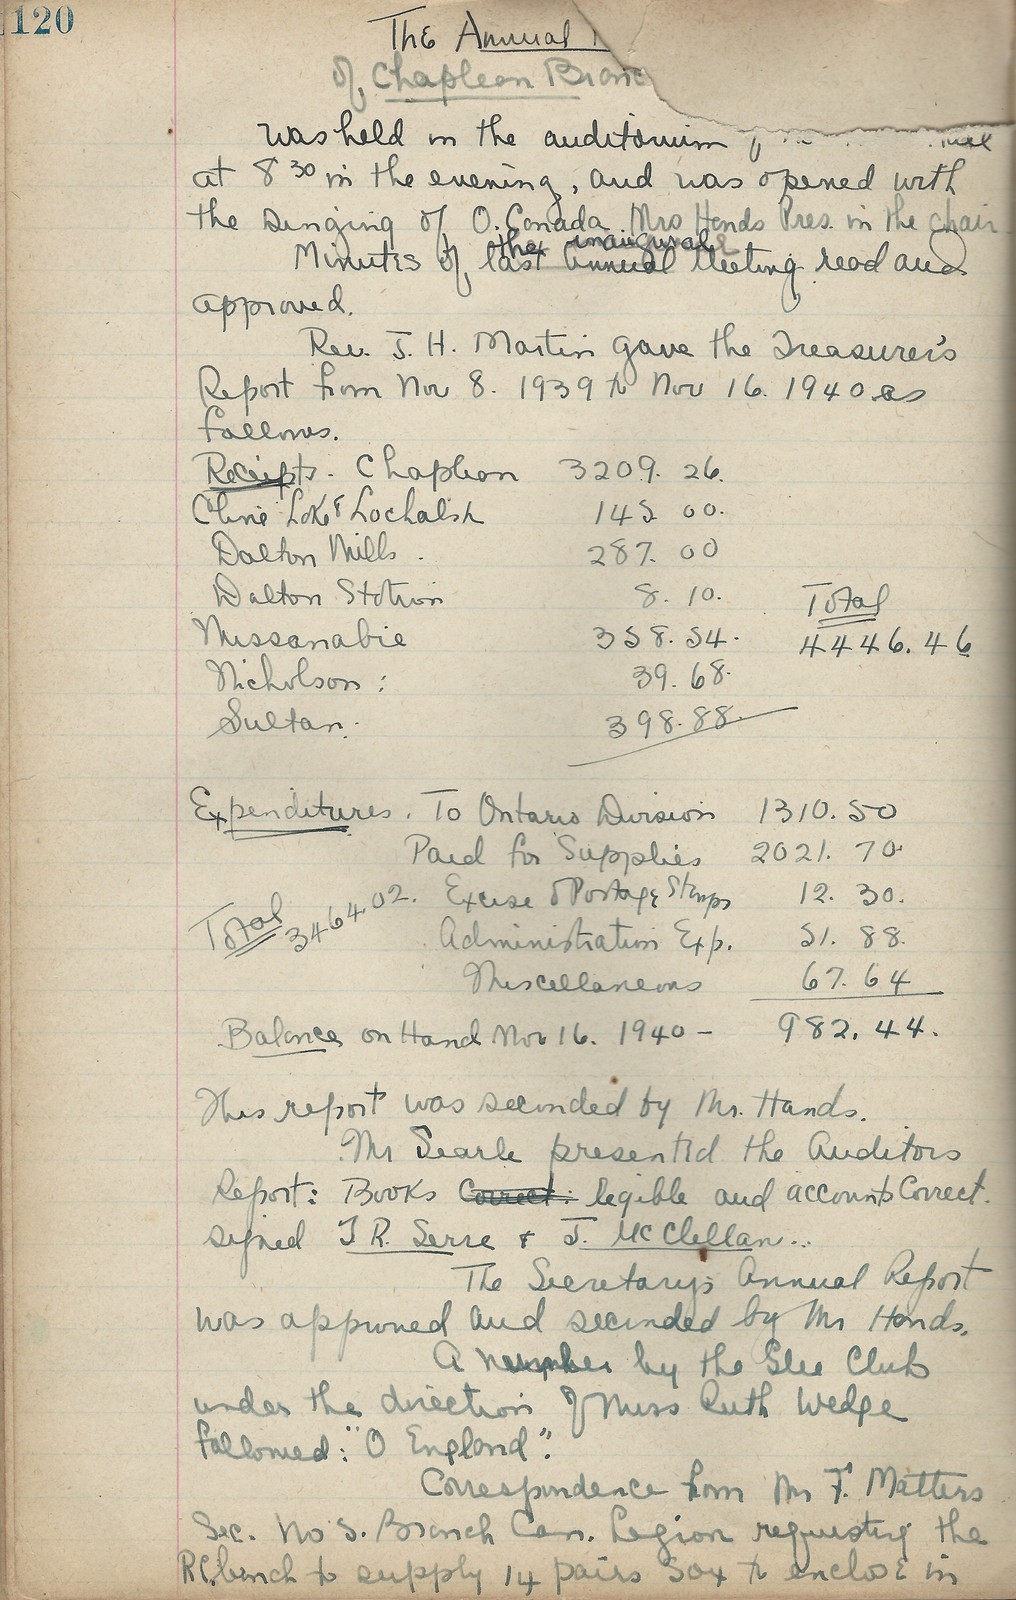 120
The Annual
of Chapleau Branc
was held in the auditorium
at 8 30 in the evening, and was opened with
the singing of O. Canada. Mrs Hands Pres. in the chair
the inaugural
Minutes of last annual Meeting read and
approved.
Rev. J. H. Martin gave the Treasurer's
Report from Nov 8. 1939 to Nov 16. 1940 as
follows.
Receipts - Chapleau 3209. 26.
Cline Lake & Lochalsh 145 00.
Dalton Mills. 287. 00
Dalton Station 8. 10. Total
Missanabie 358. 54. 4446. 46
Nicholson: 39. 68.
Sultan. 398. 88.
Expenditures. To Ontario Division 1310. 50
Paid for Supplies 2021. 70
Total 3464.02. Excise & Postage Stamps 12. 30.
Administration Exp. 51. 88.
Miscellaneous 67. 64
Balance on Hand Nov 16. 1940 - 982. 44.
This report was seconded by Mr. Hands.
Mr Searle presented the Auditors
Report: Books Correct: legible and accounts Correct.
signed T R. Serre & J. McClellan..
The Secretary's Annual Report
was approved and seconded by Mr Hands.
A number by the Glee Club
under the direction of Miss Ruth Wedge
followed: "O England".
Correspondence from Mr F. Matters
Sec. No 5. Branch Can. Legion requesting the
R.C. bench to supply 14 pairs sox to enclose in